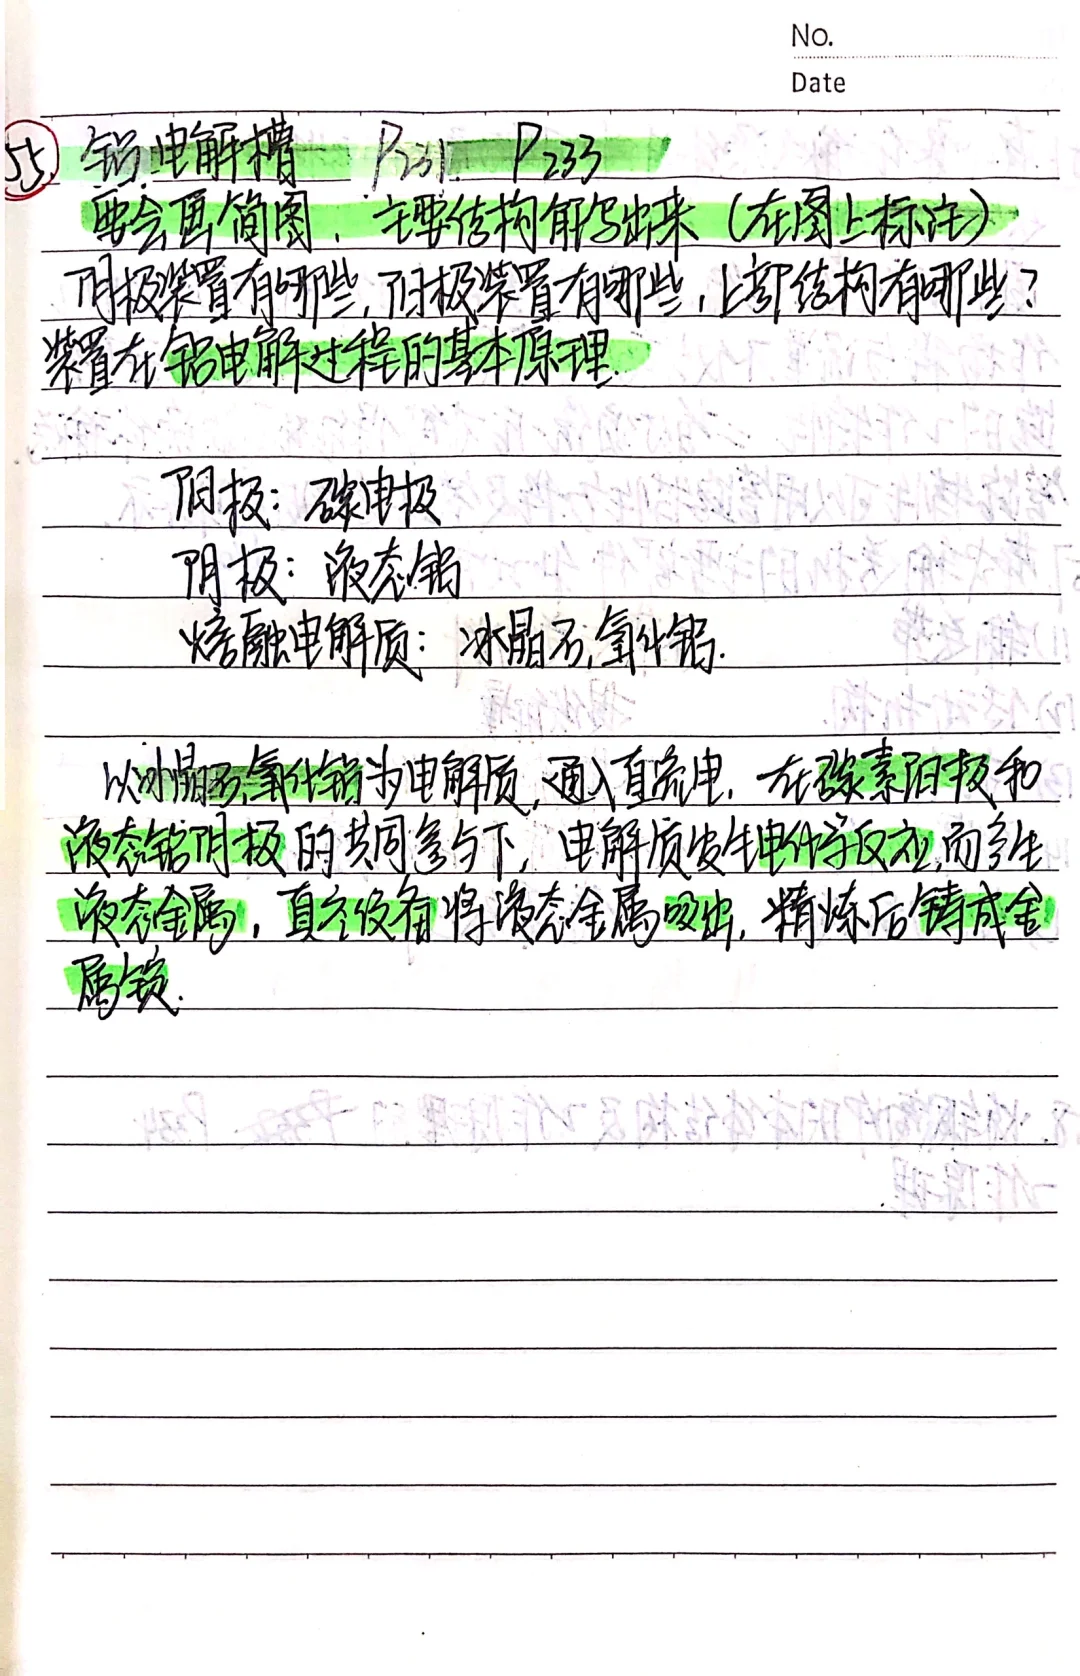 No.
Date
55 铝电解槽 P231 P233
要会画简图，主要结构能写出来（在图上标注）
阴极装置有哪些，阳极装置有哪些，上部结构有哪些？
装置在铝电解过程的基本原理.
阳极：碳电极
阴极：液态铝
熔融电解质：冰晶石，氧化铝.
以冰晶石，氧化铝为电解质，通入直流电，在碳素阳极和
液态铝阴极的共同参与下，电解质发生电化学反应，而产生
液态金属，真空设备将液态金属吸出，精炼后铸成金
属锭.